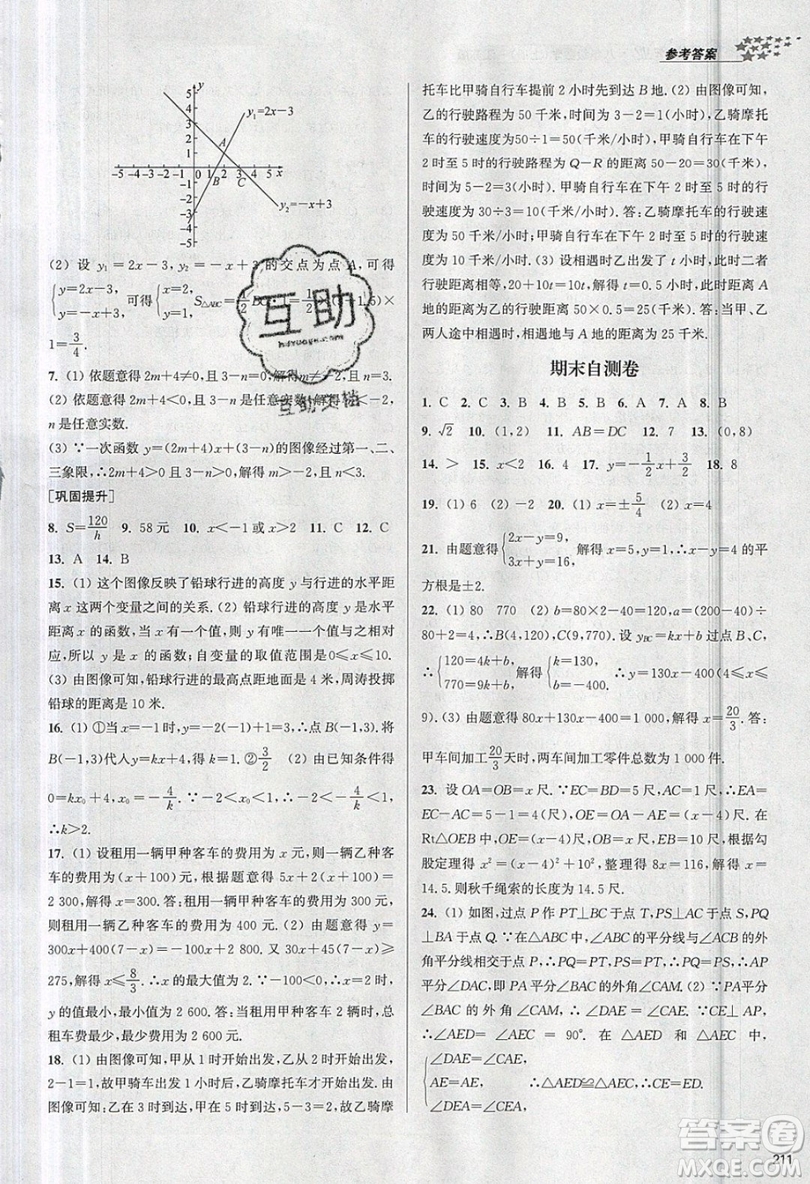 参考答案
y
5
4
3
2
1
y₁=2x-3
-5 -4 -3 -2 -1 0 1 2 3 4 5 x
A
B
C
-1
-2
-3
-4
-5
y₂=-x+3
(2) 设 y₁=2x-3,y₂=-x+3 的交点为点 A,可得
{y=2x-3, y=-x+3, 可得{x=2, y=1,
1=3/4.
7. (1) 依题意得 2m+4≠0,且 3-n=0,解得 n=3.
(2) 依题意得 2m+4≠0,且 3-n=0,解得 n=3,且
m 是任意实数.
(3) ∵一次函数 y=(2m+4)x+(3-n)的图像经过第一、二、
三象限,∴2m+4>0,3-n>0,解得 m>-2,n<3.
[巩固提升]
8. S=120/h 9. 58 元 10. x<-1或x>2 11. C 12. C
13. A 14. B
15. (1) 这个图像反映了铅球行进的高度 y 与行进的水平距
离 x 这两个变量之间的关系. (2) 铅球行进的高度 y 是水平
距离 x 的函数,自变量的取值范围是 0≤x≤10.
(3) 由图像可知,铅球行进的最高点距地面是 4 米,周涛投掷
铅球的距离是 10 米.
16. (1) ①当 x=-1 时,y=-3x=3,∴点 B(-1,3). 将
B(-1,3)代人 y=kx+4,得 k=1. ② 3/2 (2) 由已知条件得
kx₀+4=-3x₀,x₀=-4/(k+3). ∵-2<x₀<-1,解得-1<k<-
∴k>2.
17. (1) 设租用一辆甲种客车的费用为 x 元,则租用一辆乙
种客车的费用为(x+100)元,根据题意得 5x+2(x+100)=
2 300,解得 x=300. 答:租用一辆甲种客车的费用为 300 元,
租用一辆乙种客车的费用为 400 元. (2) 由题意得 y=
300x+400(7-x)=-100x+2 800. 又 30x+45(7-x)≥
275,解得 x≤8/3. ∴x 的最大值为 2. ∵-100<0,∴x=2 时,
y 的值最小,最小值为 2 600. 答:当租用甲种客车 2 辆时,总
租车费用最少,最少费用为 2 600 元.
18. (1) 由图像可知,甲从 1 时开始出发,乙从 2 时开始出发,
2-1=1,故甲骑车出发 1 小时后,乙骑摩托车才开始出发. 由
图像可知:乙在 3 时到达,甲在 5 时到达,5-3=2,故乙骑摩
托车比甲骑自行车提前 2 小时先到达 B 地. (2) 由图像可知,
乙的行驶路程为 50 千米,时间为 3-2=1(小时),乙骑摩托
车的行驶速度为50÷1=50(千米/小时). 甲骑自行车在下午
2 时至 5 时的行驶路程为 Q-R 的距离 50-20=30(千米),
行驶时间为 5-2=3(小时). 甲骑自行车在下午 2 时至 5 时的
行驶速度为 30÷3=10(千米/小时). 答:乙骑摩托车的行驶速
度为 50 千米/小时;甲骑自行车在下午 2 时至 5 时的行驶速
度为 10 千米/小时. (3) 设相遇时乙出发了 t 小时,此时二者
行驶的距离相等. 20+10t=50t,解得 t=0.5. ∴相遇地与 A
地的距离为乙的行驶距离 50×0.5=25(千米). 答:当甲、乙
两人途中相遇,相遇地与 A 地的距离为 25 千米.
期末自测卷
1. C 2. C 3. B 4. B 5. B 6. A 7. A 8. B
9. √2 10. (1,2) 11. AB=DC 12. 7 13. (0,8)
14. > 15. x<2 16. 4 17. y=-1/2x+3/2 18. 8
19. (1) 6 (2) -2 20. (1) x=±5/4 (2) x=-4
21. 由题意得{2x-y=9, x-5=0, 解得{x=5, y=1, ∴x-y=4,4 的平
方根是±2.
22. (1) 80 770 (2) b=80×2-40=120,(200-40)÷
80+2=4,∴B(4,120),C(9,770). 设 yBC=kx 过点 B、C,
∴{120=4k+b, 770=9k+b, 解得{k=130, b=-400, ∴y=130x-400(4≤x≤
9). (3) 由题意得 80x+130x-400=1 000,∴x=20/3. 答:
甲车间加工20/3天时,两车间加工零件总数为 1 000 件.
23. 设 OA=OB=x 尺. ∵EC=BD=5 尺,AC=1 尺,∴EA=
EC-AC=5-1=4(尺),OE=OA-AE=(x-4)尺. 在
Rt△OEB 中,OE=(x-4)尺,OB=x 尺,EB=10 尺,根据勾
股定理得 x²=(x-4)²+10²,整理得 8x=116,解得 x=
14.5. 则秋千绳索的长度为 14.5 尺.
24. (1) 如图,过点 P 作 PT⊥BC 于点 T,PS⊥AC 于点 S,PQ
⊥BA 于点 Q. ∵在△ABC 中,∠ABC 的平分线与∠ACB 的外
角平分线相交于点 P,∴PQ=PT,PS=PT,∴PQ=PS,∴AP
平分∠BAC 的外角∠CAM. (2) ∵PA 平
分∠BAC 的外角∠CAM,CE⊥AP,
∴∠AED=∠AEC=90°. 在△AED 与△AEC 中,
{∠DAE=∠CAE, AE=AE, ∠DEA=∠CEA, ∴△AED≌△AEC,∴CE=ED.
211
互助
hdzuoye.com
互助文档
答案圈
MXQE.COM